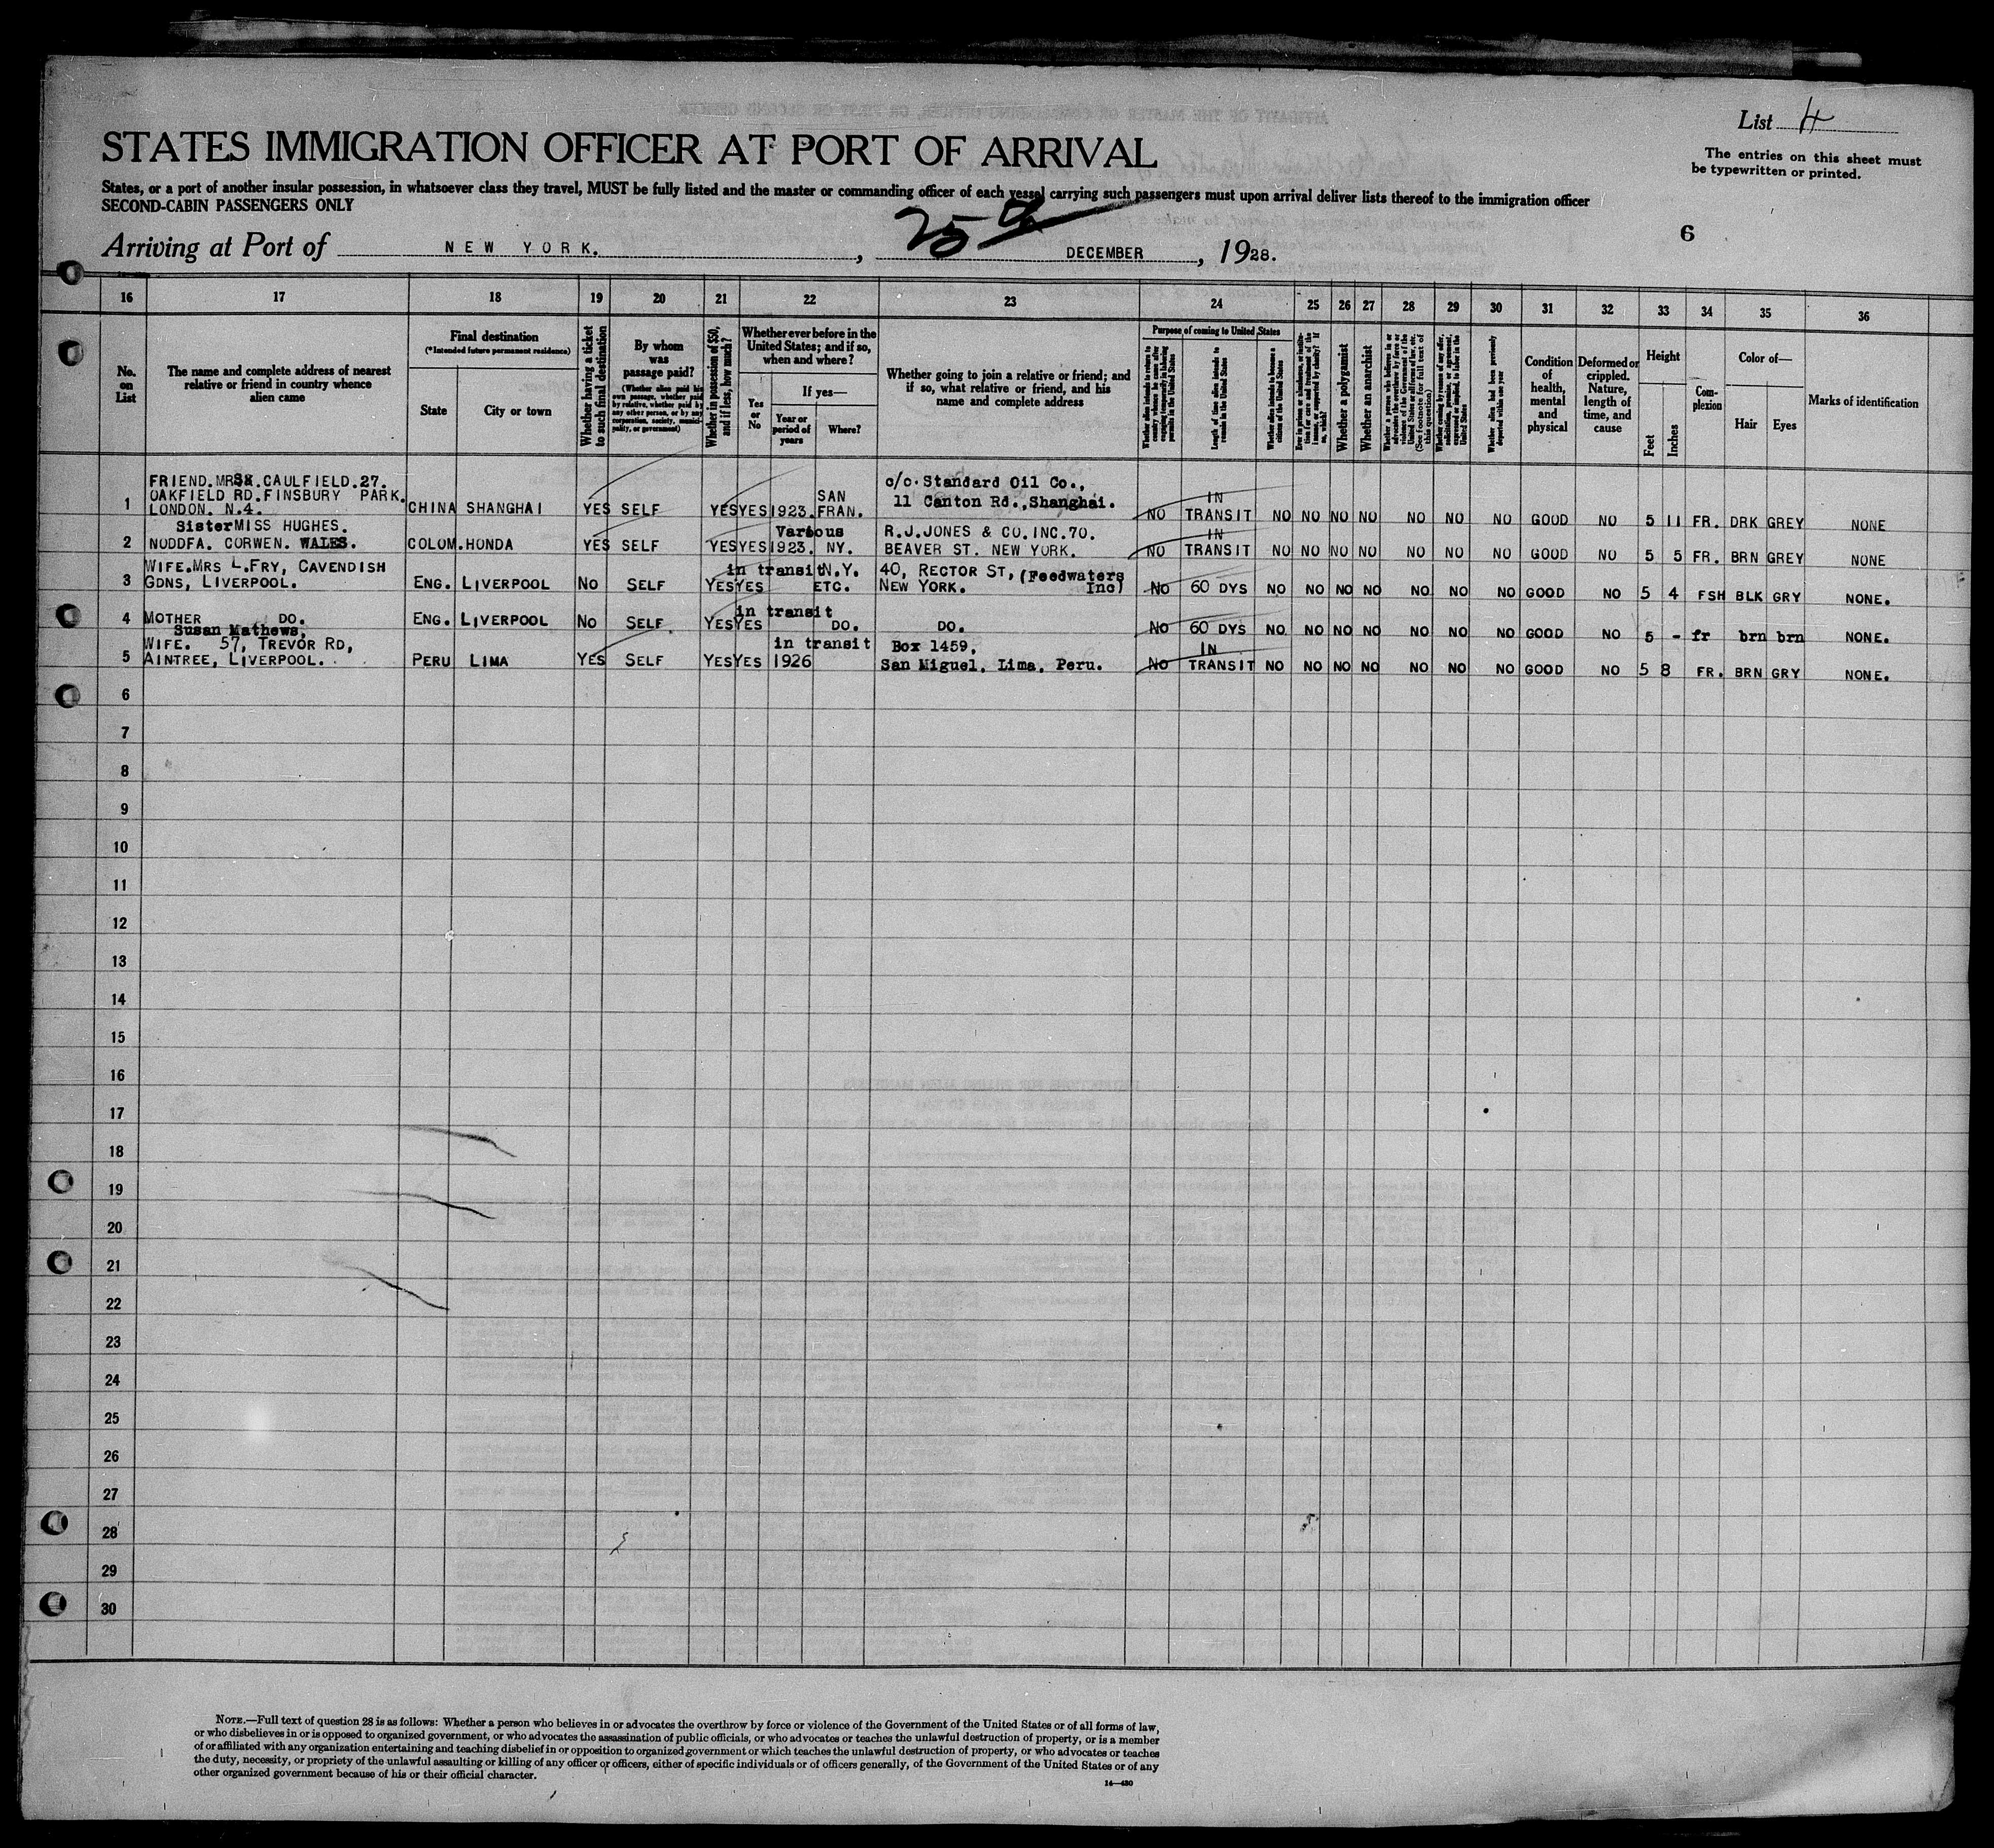 List 4
The entries on this sheet must
be typewritten or printed.
STATES IMMIGRATION OFFICER AT PORT OF ARRIVAL
States, or a port of another insular possession, in whatsoever class they travel, MUST be fully listed and the master or commanding officer of each vessel carrying such passengers must upon arrival deliver lists thereof to the immigration officer
SECOND-CABIN PASSENGERS ONLY
6
Arriving at Port of NEW YORK. , 25 DECEMBER , 1928.
16 17 18 19 20 21 22 23 24 25 26 27 28 29 30 31 32 33 34 35 36
No. on List
The name and complete address of nearest relative or friend in country whence alien came
Final destination
(*Intended future permanent residence)
State
City or town
Whether having a ticket to such final destination
By whom was passage paid?
(Whether alien paid his own passage, whether paid by relative, whether paid by any other person, or by any corporation, society, municipality, or government)
Whether in possession of $50, and if less, how much?
Whether ever before in the United States; and if so, when and where?
Yes or No
If yes—
Year or period of years
Where?
Whether going to join a relative or friend; and if so, what relative or friend, and his name and complete address
Purpose of coming to United States
Whether alien intends to return to country whence he came after engaging temporarily in laboring pursuits in the United States
Length of time alien intends to remain in the United States
Whether alien intends to become a citizen of the United States
Ever in prison or almshouse, or institution for care and treatment of the insane, or supported by charity? If so, which?
Whether a polygamist
Whether an anarchist
Whether a person who believes in or advocates the overthrow by force or violence of the Government of the United States or all forms of law, etc. (See footnote for full text of this question)
Whether coming by reason of any offer, solicitation, promise, or agreement, expressed or implied, to labor in the United States
Whether alien had been previously deported within one year
Condition of health, mental and physical
Deformed or crippled. Nature, length of time, and cause
Height
Feet
Inches
Complexion
Color of—
Hair
Eyes
Marks of identification
FRIEND.MRS CAULFIELD.27.
OAKFIELD RD.FINSBURY PARK. SAN c/o Standard Oil Co., IN
1 LONDON. N.4. CHINA SHANGHAI YES SELF YES YES 1923. FRAN. 11 Canton Rd.,Shanghai. NO TRANSIT NO NO NO NO NO NO NO GOOD NO 5 11 FR. DRK GREY NONE
Sister MISS HUGHES. Various R.J.JONES & CO.INC.70. IN
2 NODDFA. CORWEN. WALES. COLOM. HONDA YES SELF YES YES 1923. NY. BEAVER ST. NEW YORK. NO TRANSIT NO NO NO NO NO NO NO GOOD NO 5 5 FR. BRN GREY NONE
WIFE.MRS L.FRY, CAVENDISH in transit N.Y. 40, RECTOR ST, (Feedwaters
3 GDNS, LIVERPOOL. ENG. LIVERPOOL NO SELF YES YES ETC. NEW YORK. Inc) NO 60 DYS NO NO NO NO NO NO NO GOOD NO 5 4 FSH BLK GRY NONE.
in transit
4 MOTHER DO. ENG. LIVERPOOL NO SELF YES YES DO. DO. NO 60 DYS NO NO NO NO NO NO NO GOOD NO 5 - fr brn brn NONE.
Susan Mathews,
WIFE. 57, TREVOR RD, in transit Box 1459, IN
5 AINTREE, LIVERPOOL. PERU LIMA YES SELF YES YES 1926 San Miguel. Lima, Peru. NO TRANSIT NO NO NO NO NO NO NO GOOD NO 5 8 FR. BRN GRY NONE.
6
7
8
9
10
11
12
13
14
15
16
17
18
19
20
21
22
23
24
25
26
27
28
29
30
NOTE.—Full text of question 28 is as follows: Whether a person who believes in or advocates the overthrow by force or violence of the Government of the United States or of all forms of law,
or who disbelieves in or is opposed to organized government, or who advocates the assassination of public officials, or who advocates or teaches the unlawful destruction of property, or is a member
of or affiliated with any organization entertaining and teaching disbelief in or opposition to organized government or which teaches the unlawful destruction of property, or who advocates or teaches
the duty, necessity, or propriety of the unlawful assaulting or killing of any officer or officers, either of specific individuals or of officers generally, of the Government of the United States or of any
other organized government because of his or their official character.
14—430